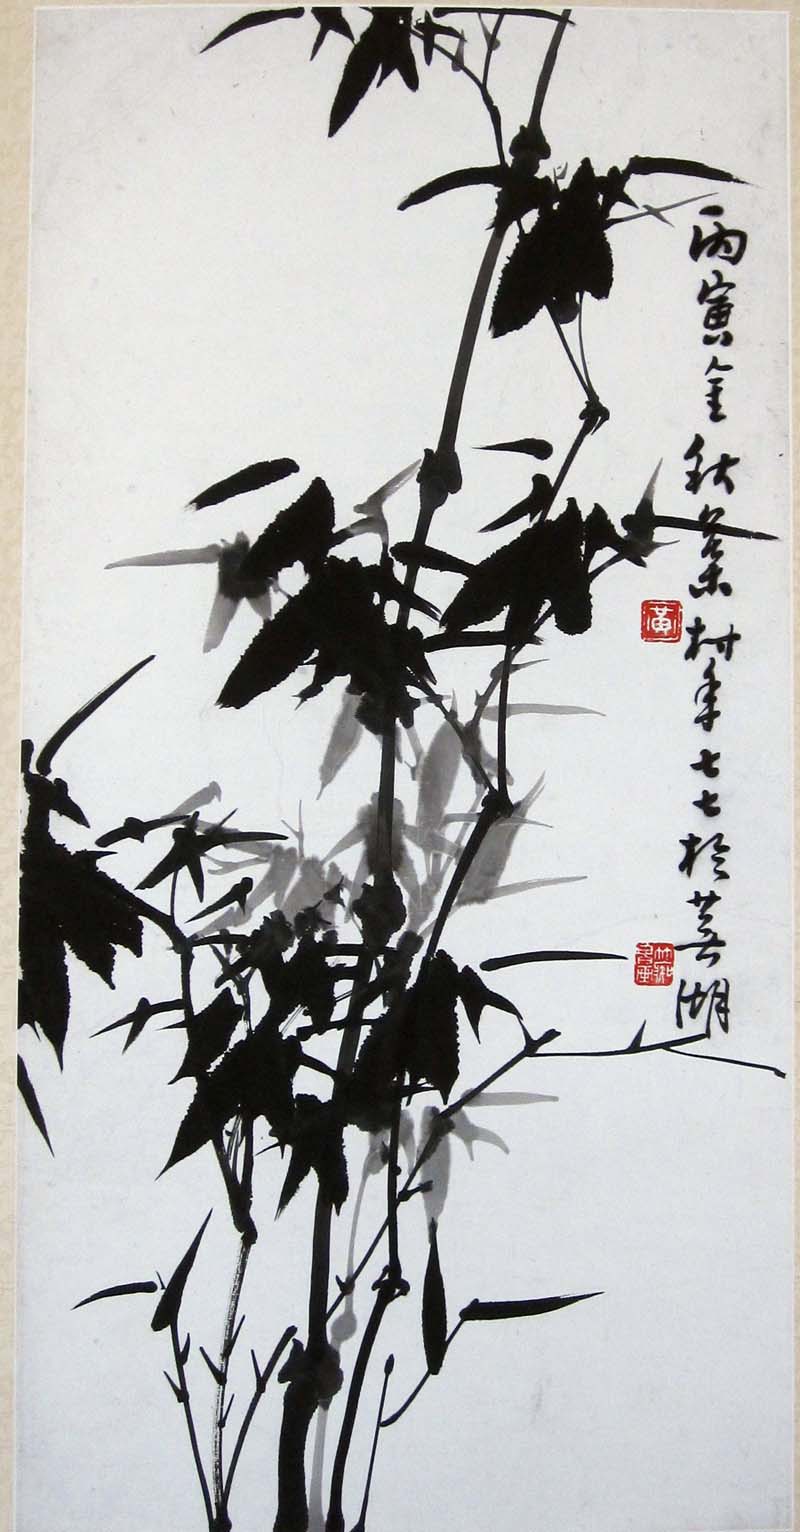 丙寅金秋葉村年七七於芜湖
黄